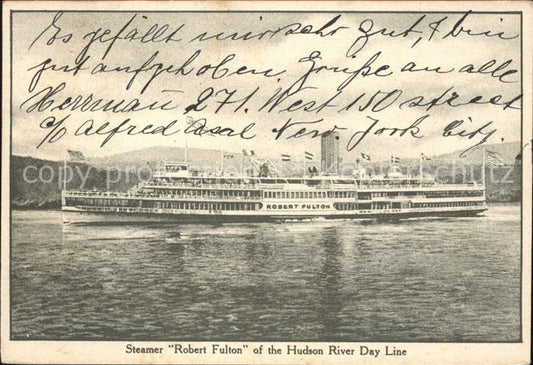 Es gefällt mir sehr gut, bin
gut aufgehoben. Grüße an alle
Herrman 271. West 150 street
c/o Alfred Asal New York City
copyright
ROBERT FULTON
Steamer "Robert Fulton" of the Hudson River Day Line